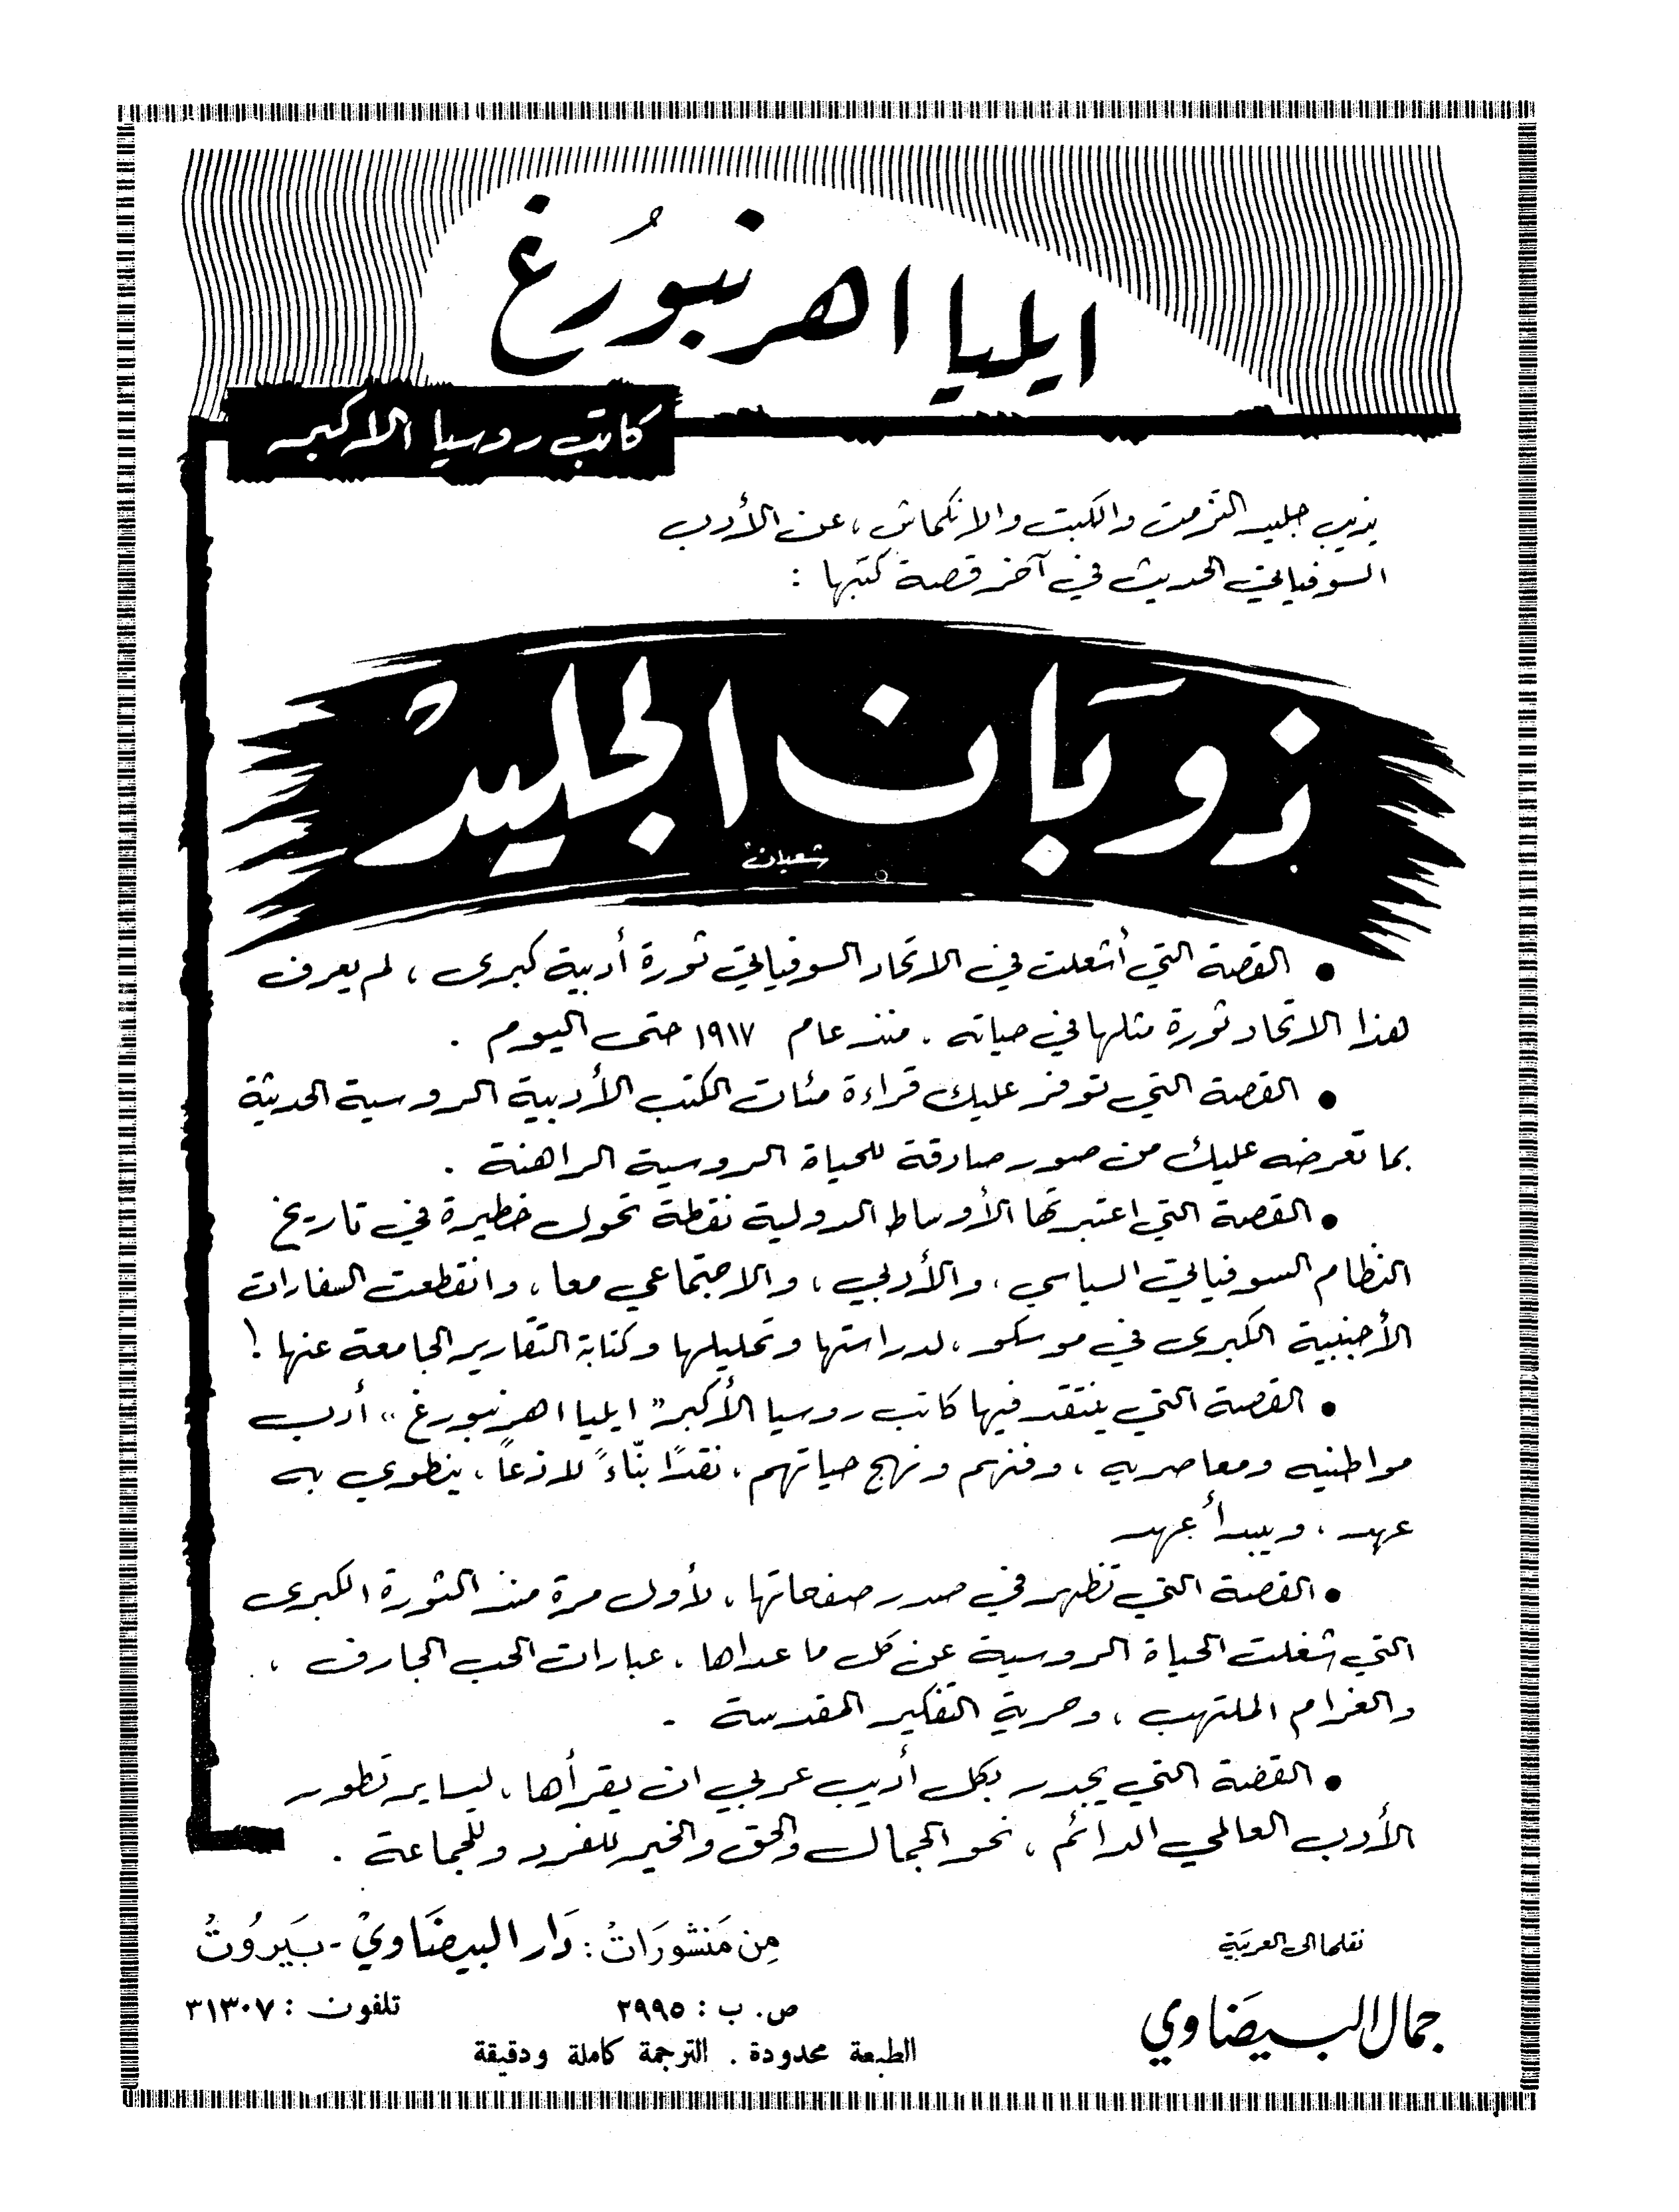 ايليا اهرنبورغ
كاتب روسيا الاكبر
يذيب جليد التزمت والكبت والانكماش، عن الأدب
السوفياتي الحديث في آخر قصة كتبها :
ذوَبَان الجليدْ
شعبان
● القصة التي أشعلت في الاتحاد السوفياتي ثورة أدبية كبرى ، لم يعرف
هذا الاتحاد ثورة مثلها في حياته . منذ عام ١٩١٧ حتى اليوم .
● القصة التي توفر عليك قراءة مئات الكتب الأدبية الروسية الحديثة
بما تعرضه عليك من صور صادقة للحياة الروسية الراهنة .
● القصة التي اعتبرتها الأوساط الدولية نقطة تحول خطيرة في تاريخ
النظام السوفياتي السياسي ، والأدبي ، والاجتماعي معا ، وانقطعت السفارات
الأجنبية الكبرى في موسكو ، لدراستها وتحليلها وكتابة التقارير الجامعة عنها !
● القصة التي ينتقد فيها كاتب روسيا الأكبر " ايليا اهرنبورغ " أدب
مواطنيه ومعاصريه ، وفنهم ونهج حياتهم ، نقدًا بنّاءً لاذعاً ، ينطوي به
عهد ، ويبدأ عهد
● القصة التي تظهر في صدر صفحاتها ، لأول مرة منذ الثورة الكبرى
التي شغلت الحياة الروسية عن كل ما عداها ، عبارات الحب الجارف ،
والغرام الملتهب ، وحرية التفكير المقدسة .
● القصة التي يجدر بكل أديب عربي ان يقرأها ، ليساير تطور
الأدب العالمي الدائم ، نحو الجمال والحق والخير للفرد وللجماعة .
نقلها الى العربيَة
جمال البيضَاوي
مِن مَنشورَاتْ : دَار البيضَاويْ - بَيروُتْ
ص . ب : ٢٩٩٥ تلفون : ٣١٣٠٧
الطبعة محدودة . الترجمة كاملة ودقيقة